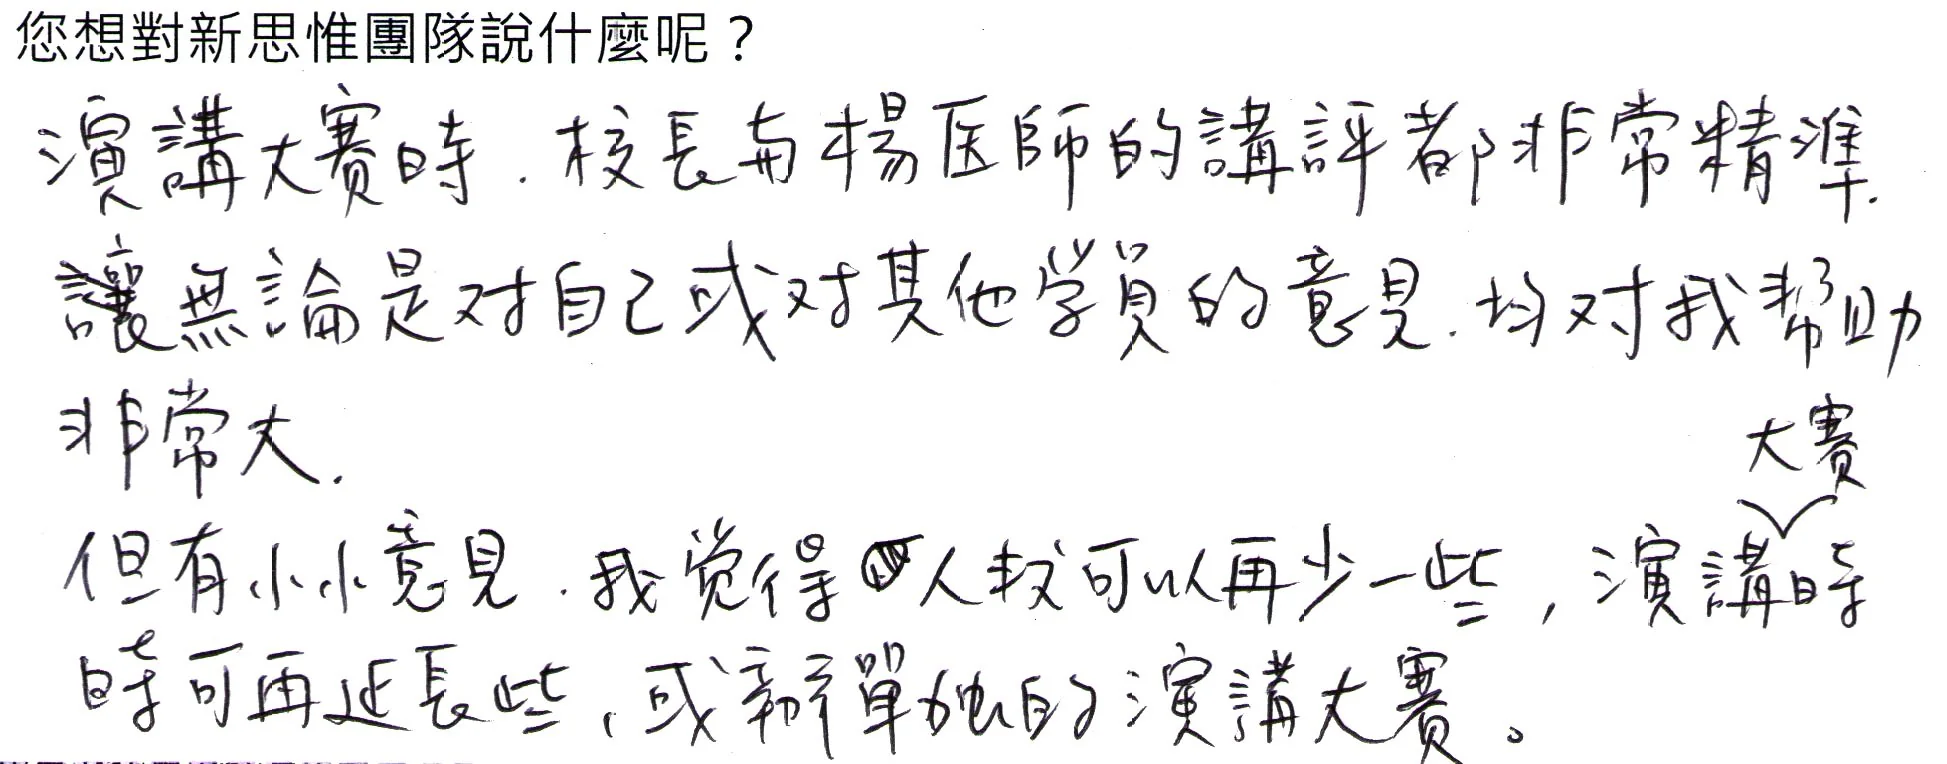 您想對新思惟團隊說什麼呢？
演講大賽時．校長与楊医師的講評都非常精準．
讓無論是对自己或对其他学員的意見．均对我帮助
非常大．
大賽
但有小小意見．我觉得人数可以再少一些，演講時
時可再延長些，或辦單独的演講大賽。